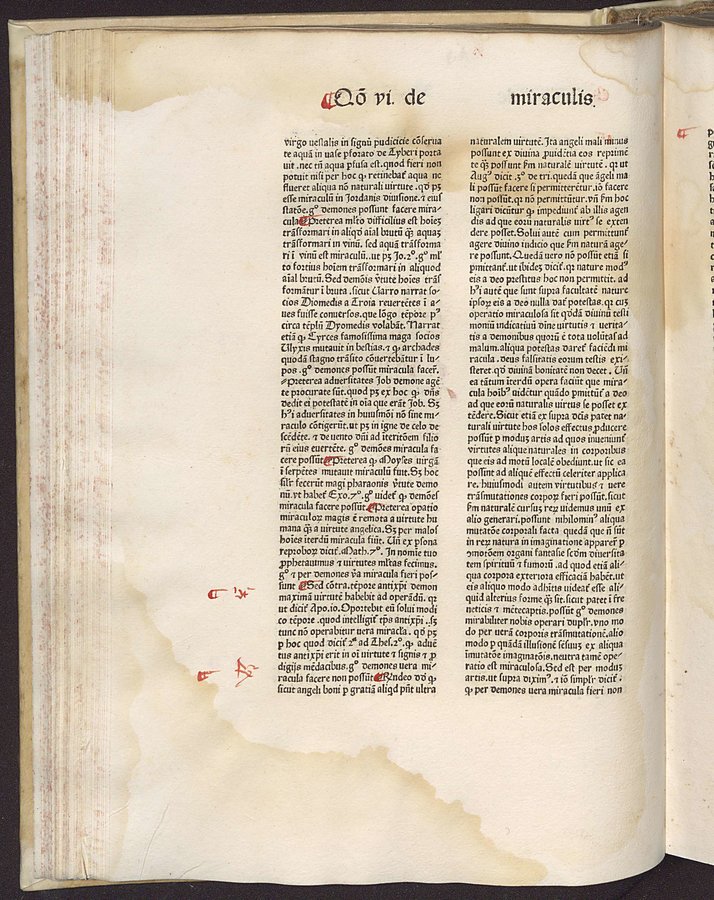 Qō vi. de miraculis.
virgo vestalis in signū pudicicie cōserua
te aquā in vase pforato de Tyberi porta
uit. nec tn̄ aqua p̄fusa est. quod fieri non
potuit nisi per hoc ꝙ retinebat̄ aqua ne
flueret aliqua nō naturali virtute. qd̄ p̄ꝫ
esse miraculū in Jordanis diuisione. ⁊ eius
statōe. gͦ demones possunt facere mira-
cula Preterea ml̄to difficilius est hoīes
trāsformari in aliqd̄ aīal brutū q̄ꝫ aquaꝫ
trāsformari in vinū. sed aquā trāsforma
ri ī vinū est miraculū. vt pꝫ Jo. 2ͦ. gͦ ml̄
to fortius hoīem trāsformari in aliquod
aīal brutū. Sed demōis v̄tute hoīes trās
formātur ī bruta. sicut Uarro narrat so-
cios Diomedis a Troia reuertētes ī a-
ues fuisse conuersos. que lōgo tēpore pꝰ
circa tēplū Dyomedis volabāt. Narrat
etiā ꝙ Cyrces famosissima maga socios
Ulyxis mutauit in bestias. ⁊ ꝙ archades
quodā stagno trāsito cōuertebātur ī lu-
pos. gͦ demones possūt miracula facer̄.
Preterea aduersitates Job demone agē
te procurate sūt. quod pꝫ ex hoc ꝙ dn̄s
dedit ei potestatē in oīa que erāt Job. Sꝫ
hꝰī aduersitates in huiusmōi nō sine mi-
raculo cōtigerūt. vt pꝫ in igne de celo de
scēdēte. ⁊ de vento dn̄i ad īteritōem filio
rū eius euertēte. gͦ demōes miracula fa
cere possūt Preterea ꝙ Moyses virgā
ī serpētes mutauit miraculū fuit. Sꝫ hoc
sil̄r fecerūt magi pharaonis v̄tute demo
nū. vt habet̄ Exo. 7ͦ. gͦ videt̄ ꝙ demōes
miracula facere possūt Preterea opatio
miraculoꝝ magis ē remota a virtute hu
mana q̄ꝫ a virtute angelica. Sꝫ per malos
hoīes īterdū miracula fiūt. Un̄ ex psona
reproboꝝ dicit̄ Math. 7ͦ. In nomīe tuo
pphetauimus ⁊ virtutes ml̄tas fecimus.
gͦ ⁊ per demones v̄a miracula fieri pos-
sunt Sed cōtra. tēpore antixp̄i demon
maximā virtutē habebit ad operādū. qꝛ
vt dicit̄ Apo. Oportebit eū solui modi
co tēpore. quod intelligit̄ tp̄s antixp̄i. sꝫ
tunc nō operabitur vera miracl̄a. qd̄ pꝫ
p hoc quod dicit̄ 2ᵃ ad Thes. 2ͦ. ꝙ aduē
tus antixp̄i erit in oī virtute ⁊ signis ⁊ p
digijs mēdacibus. gͦ demones vera mi-
racula facere non possūt Rn̄deo dd̄ ꝙ
sicut angeli boni p gratiā aliqd̄ pn̄t vltra
naturalem virtutē. Ita angeli mali minus
possunt ex diuina puidētia eos reprimē
te q̄ꝫ possunt fm̄ naturalē virtutē. qꝛ vt
Augꝰ dicit. 3ͦ. de tri. quedā que āgeli ma
li possūt facere si permitterētur. iō facere
non possūt. qꝛ nō permittūtur. vn̄ fm̄ hoc
ligari dicūtur ꝙ impediunt̄ ab illis agen
dis ad que eorū naturalis virtꝰ se exten
dere posset. Solui autē cum permittunt̄
agere diuino iudicio que fm̄ naturā age-
re possunt. Quedā vero nō possūt etiā si
pmittant̄. vt ibideꝫ dicit̄. qꝛ nature modꝰ
eis a deo prestitus hoc non permittit. ad
hꝰī autē que sunt supra facultatē nature
ipsoꝝ eis a deo nulla dat̄ potestas. qꝛ cuꝫ
operatio miraculosa sit qd̄dā diuinū testi
moniū indicatiuū diīne virtutis ⁊ verita-
tis a demonibus quorū ē tota volūtas ad
malum. aliqua potestas daret̄ faciēdi mi
racula. deus falsitatis eorum testis exi-
steret. qd̄ diuinā bonitatē non decet. Un̄
ea tātum īterdū opera faciūt que mira-
cula hoībꝰ vidētur quādo pmittūt̄ a deo
ad que eorū naturalis virtus se posset ex
tēdere. Sicut etiā ex supra dc̄is patet na-
turali virtute hos solos effectus pducere
possūt p moduꝫ artis ad quos inueniunt̄
virtutes alique naturales in corporibus
que eis ad motū localē obediunt. vt sic ea
possint ad aliquē effectū celeriter applica
re. huiusmodi autem virtutibus ⁊ vere
trāsmutationes corpoꝝ fieri possūt. sicut
fm̄ naturalē cursuꝫ reꝝ videmus vnū ex
alio generari. possunt nihilominꝰ aliqua
mutatōe corporali facta quedā que n̄ sūt
in reꝝ natura in imaginatione apparer̄ p
ↄmotōem organi fantasie scd̄m diuersita
tem spirituū ⁊ fumorū. ad quod etiā ali-
qua corpora exteriora efficaciā habēt. vt
eis aliquo modo adhibitis videat̄ esse ali-
quid alterius forme q̄ꝫ sit. sicut patet ī fre
neticis ⁊ mētecaptis. possūt gͦ demones
mirabiliter nobis operari dupl̄r. vno mo
do per verā corporis trāsmutationē. alio
modo p quādā illusionē sēsuuꝫ ex aliqua
imutatōe imaginatōnis. neutra tamē ope-
ratio est miraculosa. Sed est per moduꝫ
artis. vt supra diximꝰ. ⁊ iō simpl̄r dicit̄.
ꝙ per demones vera miracula fieri non